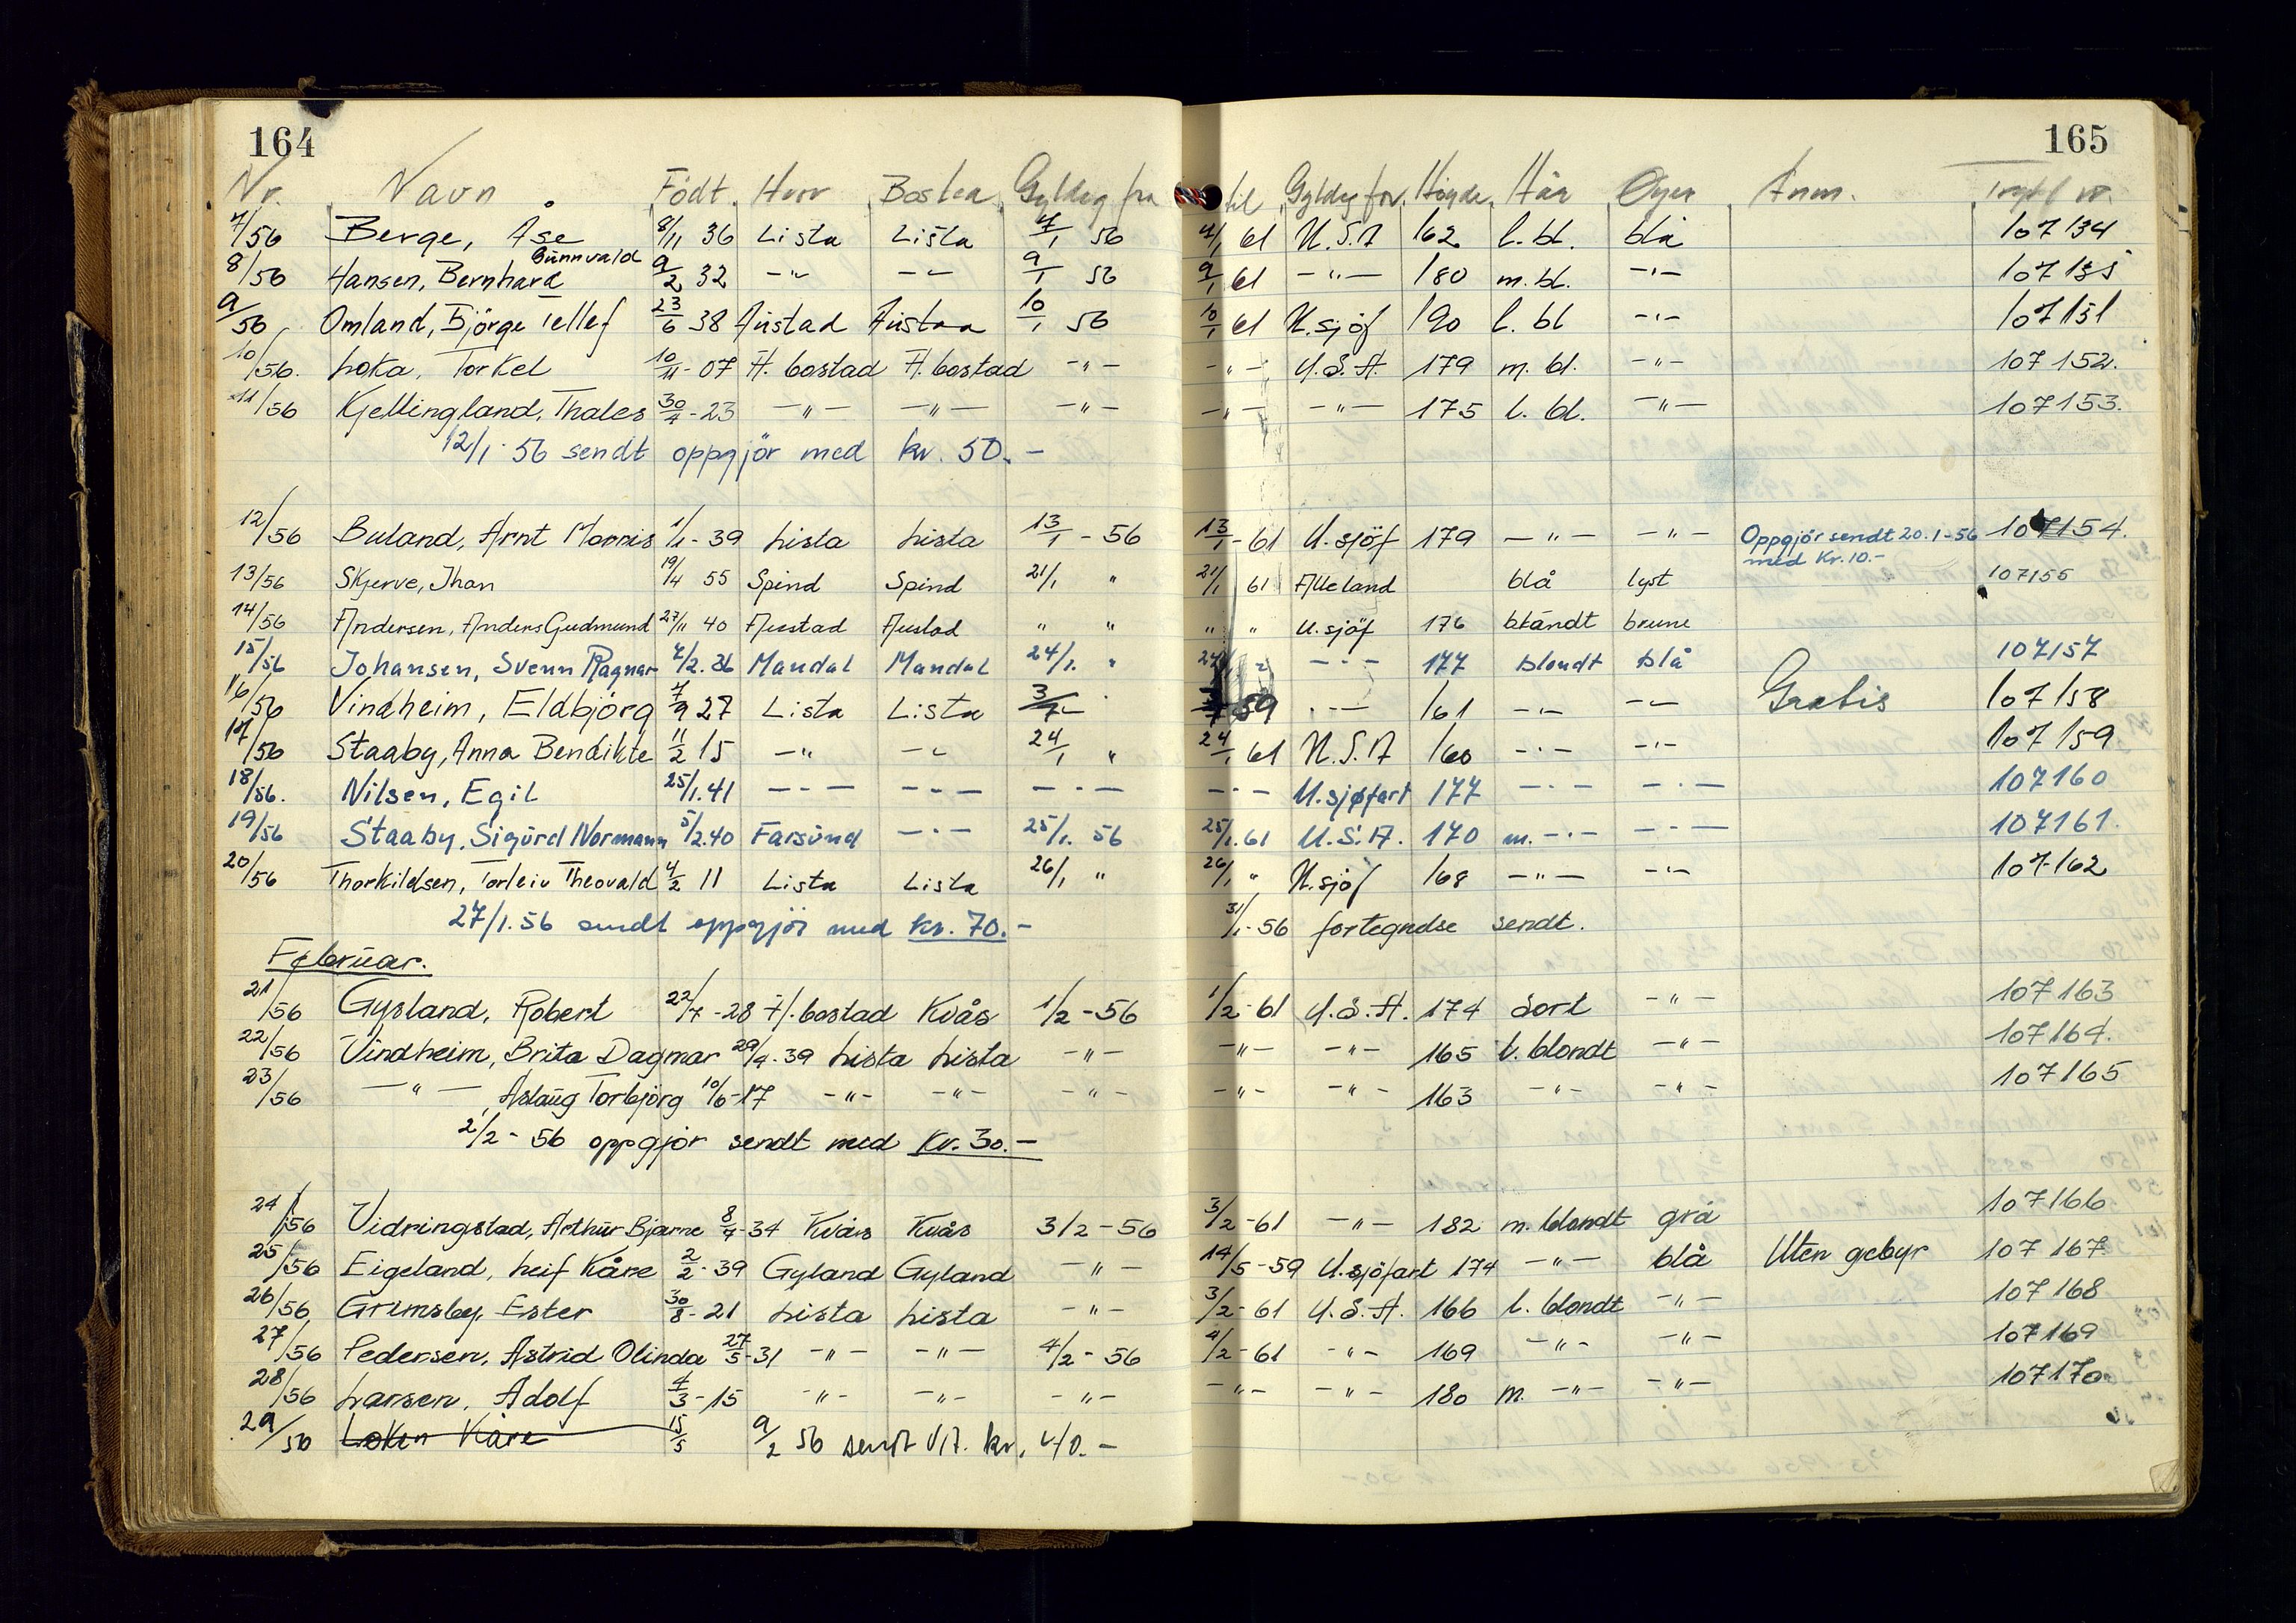 164 165
Nr. Navn Födt Hvor Bosted Gyldig fra til Gyldig for Höyde Hår Öyer Anm.
7/56 Berge, Åse 8/11 36 Lista Lista 7/1 56 7/1 61 U.S.A 162 l. bl. blå 107134
Gunnvald
8/56 Hansen, Bernhard 9/2 32 -"- -"- 9/1 56 9/1 61 -"- 180 m. bl. -"- 107135
9/56 Omland, Björge Tellef 23/6 38 Austad Austad 10/1 56 10/1 61 U.sjöf 190 l. bl -"- 107151
10/56. Loka, Torkel 10/11-07 H.bostad H.bostad -"- -"- U.S.A. 179 m. bl. -"- 107152.
11/56 Kjellingland, Thales 30/7-23 -"- -"- -"- -"- -"- 175 l. bl. -"- 107153.
12/1-56 sendt oppgjör med kr. 50.-
12/56 Buland, Arnt Morris 1/1-39 Lista Lista 13/1-56 13/1-61 U.sjöf 179 -"- -"- Oppgjör sendt 20.1-56 107154.
med Kr.10.-
13/56 Skjerve, Jhan 19/4 55 Spind Spind 21/1 " 21/1 61 Alle land blå lyst 107155
14/56 Andersen, Anders Gudmund 27/11 40 Austad Austad " " " " U.sjöf 176 blåndt brune
15/56 Johansen, Svenn Ragnar 7/2.36 Mandal Mandal 24/1. " 24/1 " -"- 177 blondt blå 107157
16/56 Vindheim, Eldbjörg 7/9 27 Lista Lista 3/7 59 -"- 161 -"- -"- Gratis 107158
17/56 Staaby, Anna Bendikte 11/2 15 -"- -"- 24/1 " 24/1 61 U.S.A 160 -"- -"- 107159
18/56. Nilsen, Egil 25/1.41 -"- -"- -"- -"- U.sjøfart 177 -"- -"- 107160
19/56 Staaby, Sigurd Normann 5/2.40 Farsund -"- 25/1. 56 25/1.61 U.S.A. 170 m. -"- -"- 107161.
20/56 Thorkildsen, Torleiv Theovald 4/2 11 Lista Lista 26/1 " 26/1 " U.sjöf 168 -"- -"- 107162
27/1.56 sendt oppgjör med kr. 70.- 31/1-56 fortegnelse sendt.
Februar.
21/56 Gysland, Robert 22/7-28 H.bostad Kvås 1/2-56 1/2-61 U.S.A. 174 Sort -"- 107163
22/56 Vindheim, Brita Dagmar 29/4-39 Lista Lista -"- -"- -"- 165 l. blondt -"- 107164.
23/56 -"-, Aslaug Torbjörg 10/6-17 -"- -"- -"- -"- -"- 163 -"- -"- 107165
2/2-56 oppgjör sendt med Kr. 30.-
24/56 Vidringstad, Arthur Bjarne 8/7-34 Kvås Kvås 3/2-56 3/2-61 -"- 182 m. blondt grå 107166
25/56 Eigeland, Leif Kåre 2/2-39 Gyland Gyland -"- 14/5-59 U.sjöfart 174 -"- blå Uten gebyr 107167
26/56 Grimsby, Ester 30/8-21 Lista Lista -"- 3/2-61 U.S.A. 166 l. blondt -"- 107168
27/56 Pedersen, Astrid Olinda 27/5-31 -"- -"- 4/2-56 4/2-61 -"- 169 -"- -"- 107169
28/56 Larsen, Adolf 4/3-15 -"- -"- -"- -"- -"- 180 m. -"- -"- 107170
29/56 Loken Kåre 15/5 9/2 56 sendt kr. 40.-